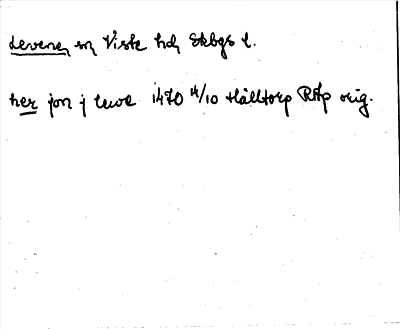 Levene, sn Viste hd, Skbgs l.
her jon j lewe 1470 14/10 Hålltorp RAp orig.